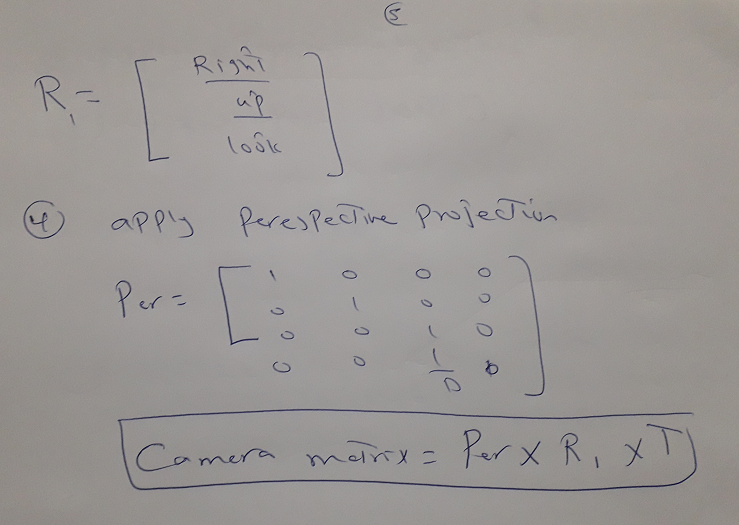 ⑤
R₁ = [ Right̂
up̂
look̂ ]
④ apply Perespective Projection
Per = [ 1 0 0 0
0 1 0 0
0 0 1 0
0 0 1/D 0 ]
Camera matrix = Per x R₁ x T